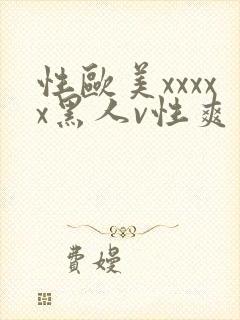 性歐美xxxx
x黑人v性爽
費嫚